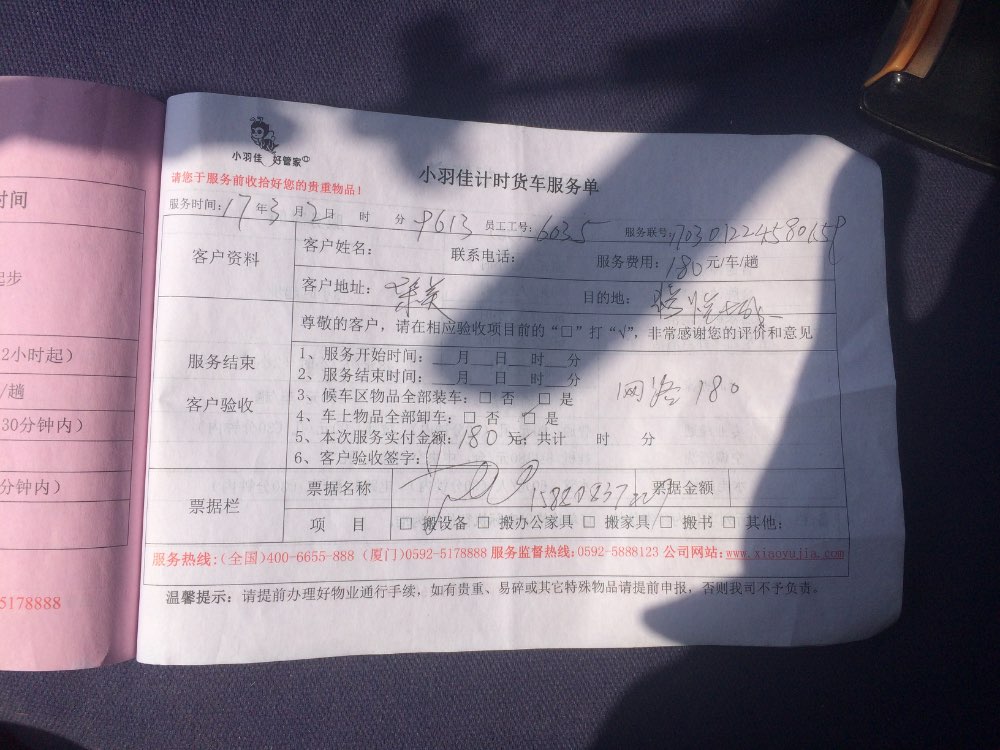 时间
起步
2小时起）
/趟
30分钟内）
分钟内）
5178888
小羽佳 好管家
小羽佳计时货车服务单
请您于服务前收拾好您的贵重物品！
服务时间：17年3月2日 时 分 9613 员工工号：6035 服务联号：
客户资料
客户姓名： 联系电话： 服务费用：180元/车/趟
客户地址：集美 目的地：
尊敬的客户，请在相应验收项目前的“□”打“√”，非常感谢您的评价和意见
服务结束
客户验收
1、服务开始时间：___月___日___时___分
2、服务结束时间：___月___日___时___分
3、候车区物品全部装车：□ 否 □ 是
4、车上物品全部卸车：□ 否 □ 是
5、本次服务实付金额：180元；共计 时 分
6、客户验收签字：
网络180
票据栏
票据名称 票据金额
项 目 □ 搬设备 □ 搬办公家具 □ 搬家具 □ 搬书 □ 其他：
服务热线：（全国）400-6655-888（厦门）0592-5178888 服务监督热线：0592-5888123 公司网站：www.xiaoyujia.com
温馨提示：请提前办理好物业通行手续，如有贵重、易碎或其它特殊物品请提前申报，否则我司不予负责。